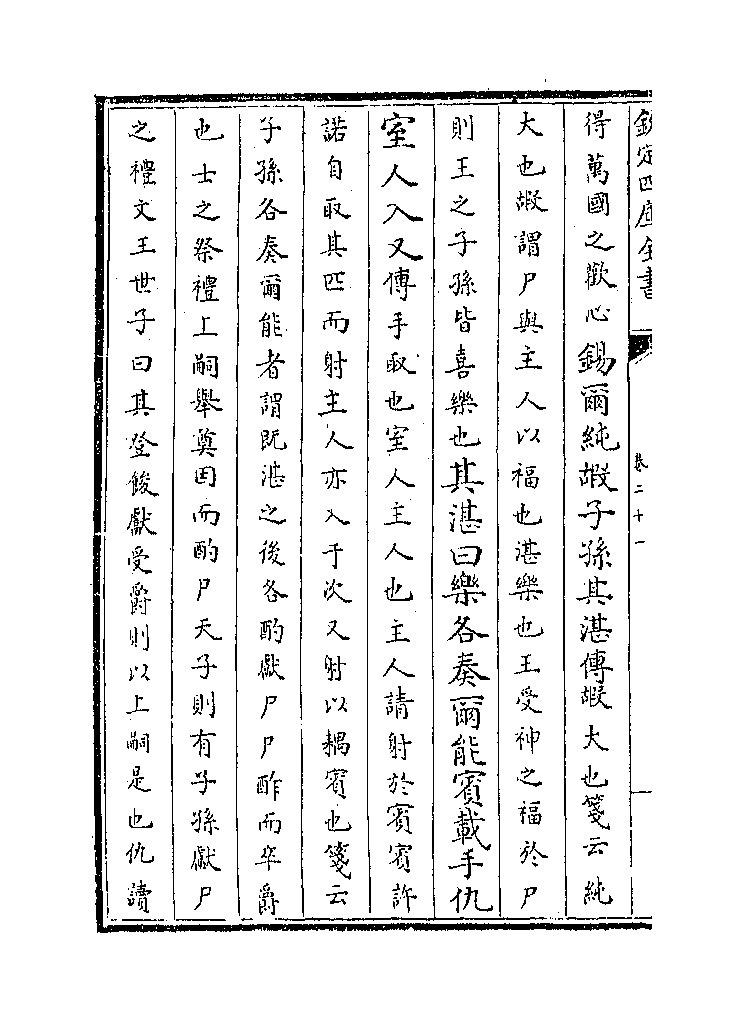 欽定四庫全書
卷二十一
得萬國之歡心錫爾純嘏子孫其湛傳嘏大也箋云純
大也嘏謂尸與主人以福也湛樂也王受神之福於尸
則王之子孫皆喜樂也其湛曰樂各奏爾能賓載手仇
室人入又傳手取也室人主人也主人請射於賓賓許
諾自取其匹而射主人亦入于次又射以耦賓也箋云
子孫各奏爾能者謂既湛之後各酌獻尸尸酢而卒爵
也士之祭禮上嗣舉奠因而酌尸天子則有子孫獻尸
之禮文王世子曰其登餕獻受爵則以上嗣是也仇讀